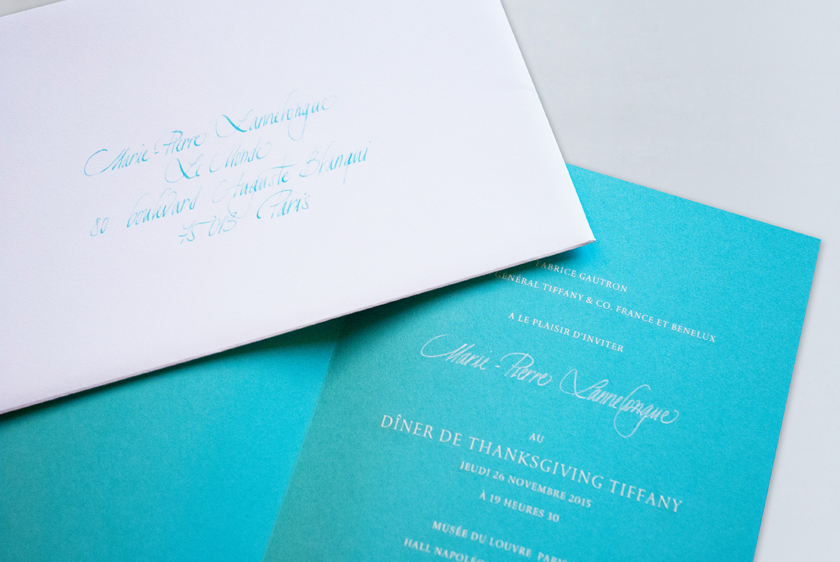 Marie-Pierre Lannelongue
Le Monde
80 boulevard Auguste Blanqui
75 013 Paris
FABRICE GAUTRON
GÉNÉRAL TIFFANY & CO. FRANCE ET BENELUX
A LE PLAISIR D'INVITER
Marie-Pierre Lannelongue
AU
DÎNER DE THANKSGIVING TIFFANY
JEUDI 26 NOVEMBRE 2015
À 19 HEURES 30
MUSÉE DU LOUVRE PARIS
HALL